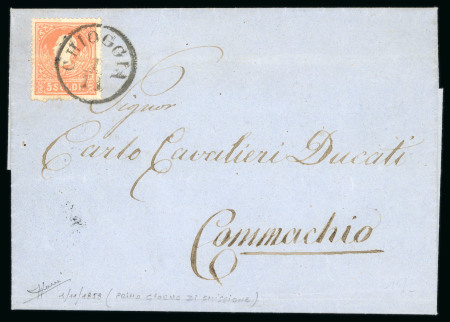 CHIOGGIA
5 SOLDI
Signor
Carlo Cavalieri Ducati
Commachio
1/11/1858 (PRIMO GIORNO DI EMISSIONE)